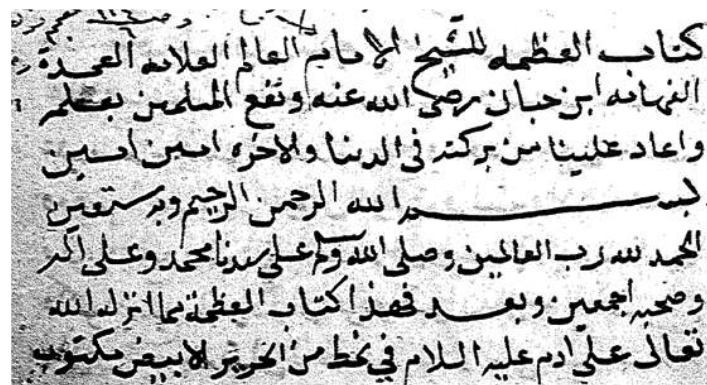 كتاب العظمه للشيخ الامام العالم العلامه العمدة
الفهامه ابن حبان رضى الله عنه ونفع المسلمين بعلمه
واعاد علينا من بركته فى الدنيا والاخره امين امين
بسم الله الرحمن الرحيم وبه نستعين
الحمد لله رب العالمين وصلى الله وسلم على سيدنا محمد وعلى اله
وصحبه اجمعين وبعد فهذا كتاب العظمة مما انزله الله
تعالى على ادم عليه السلام في نمط من الحرير الابيض مكتوب